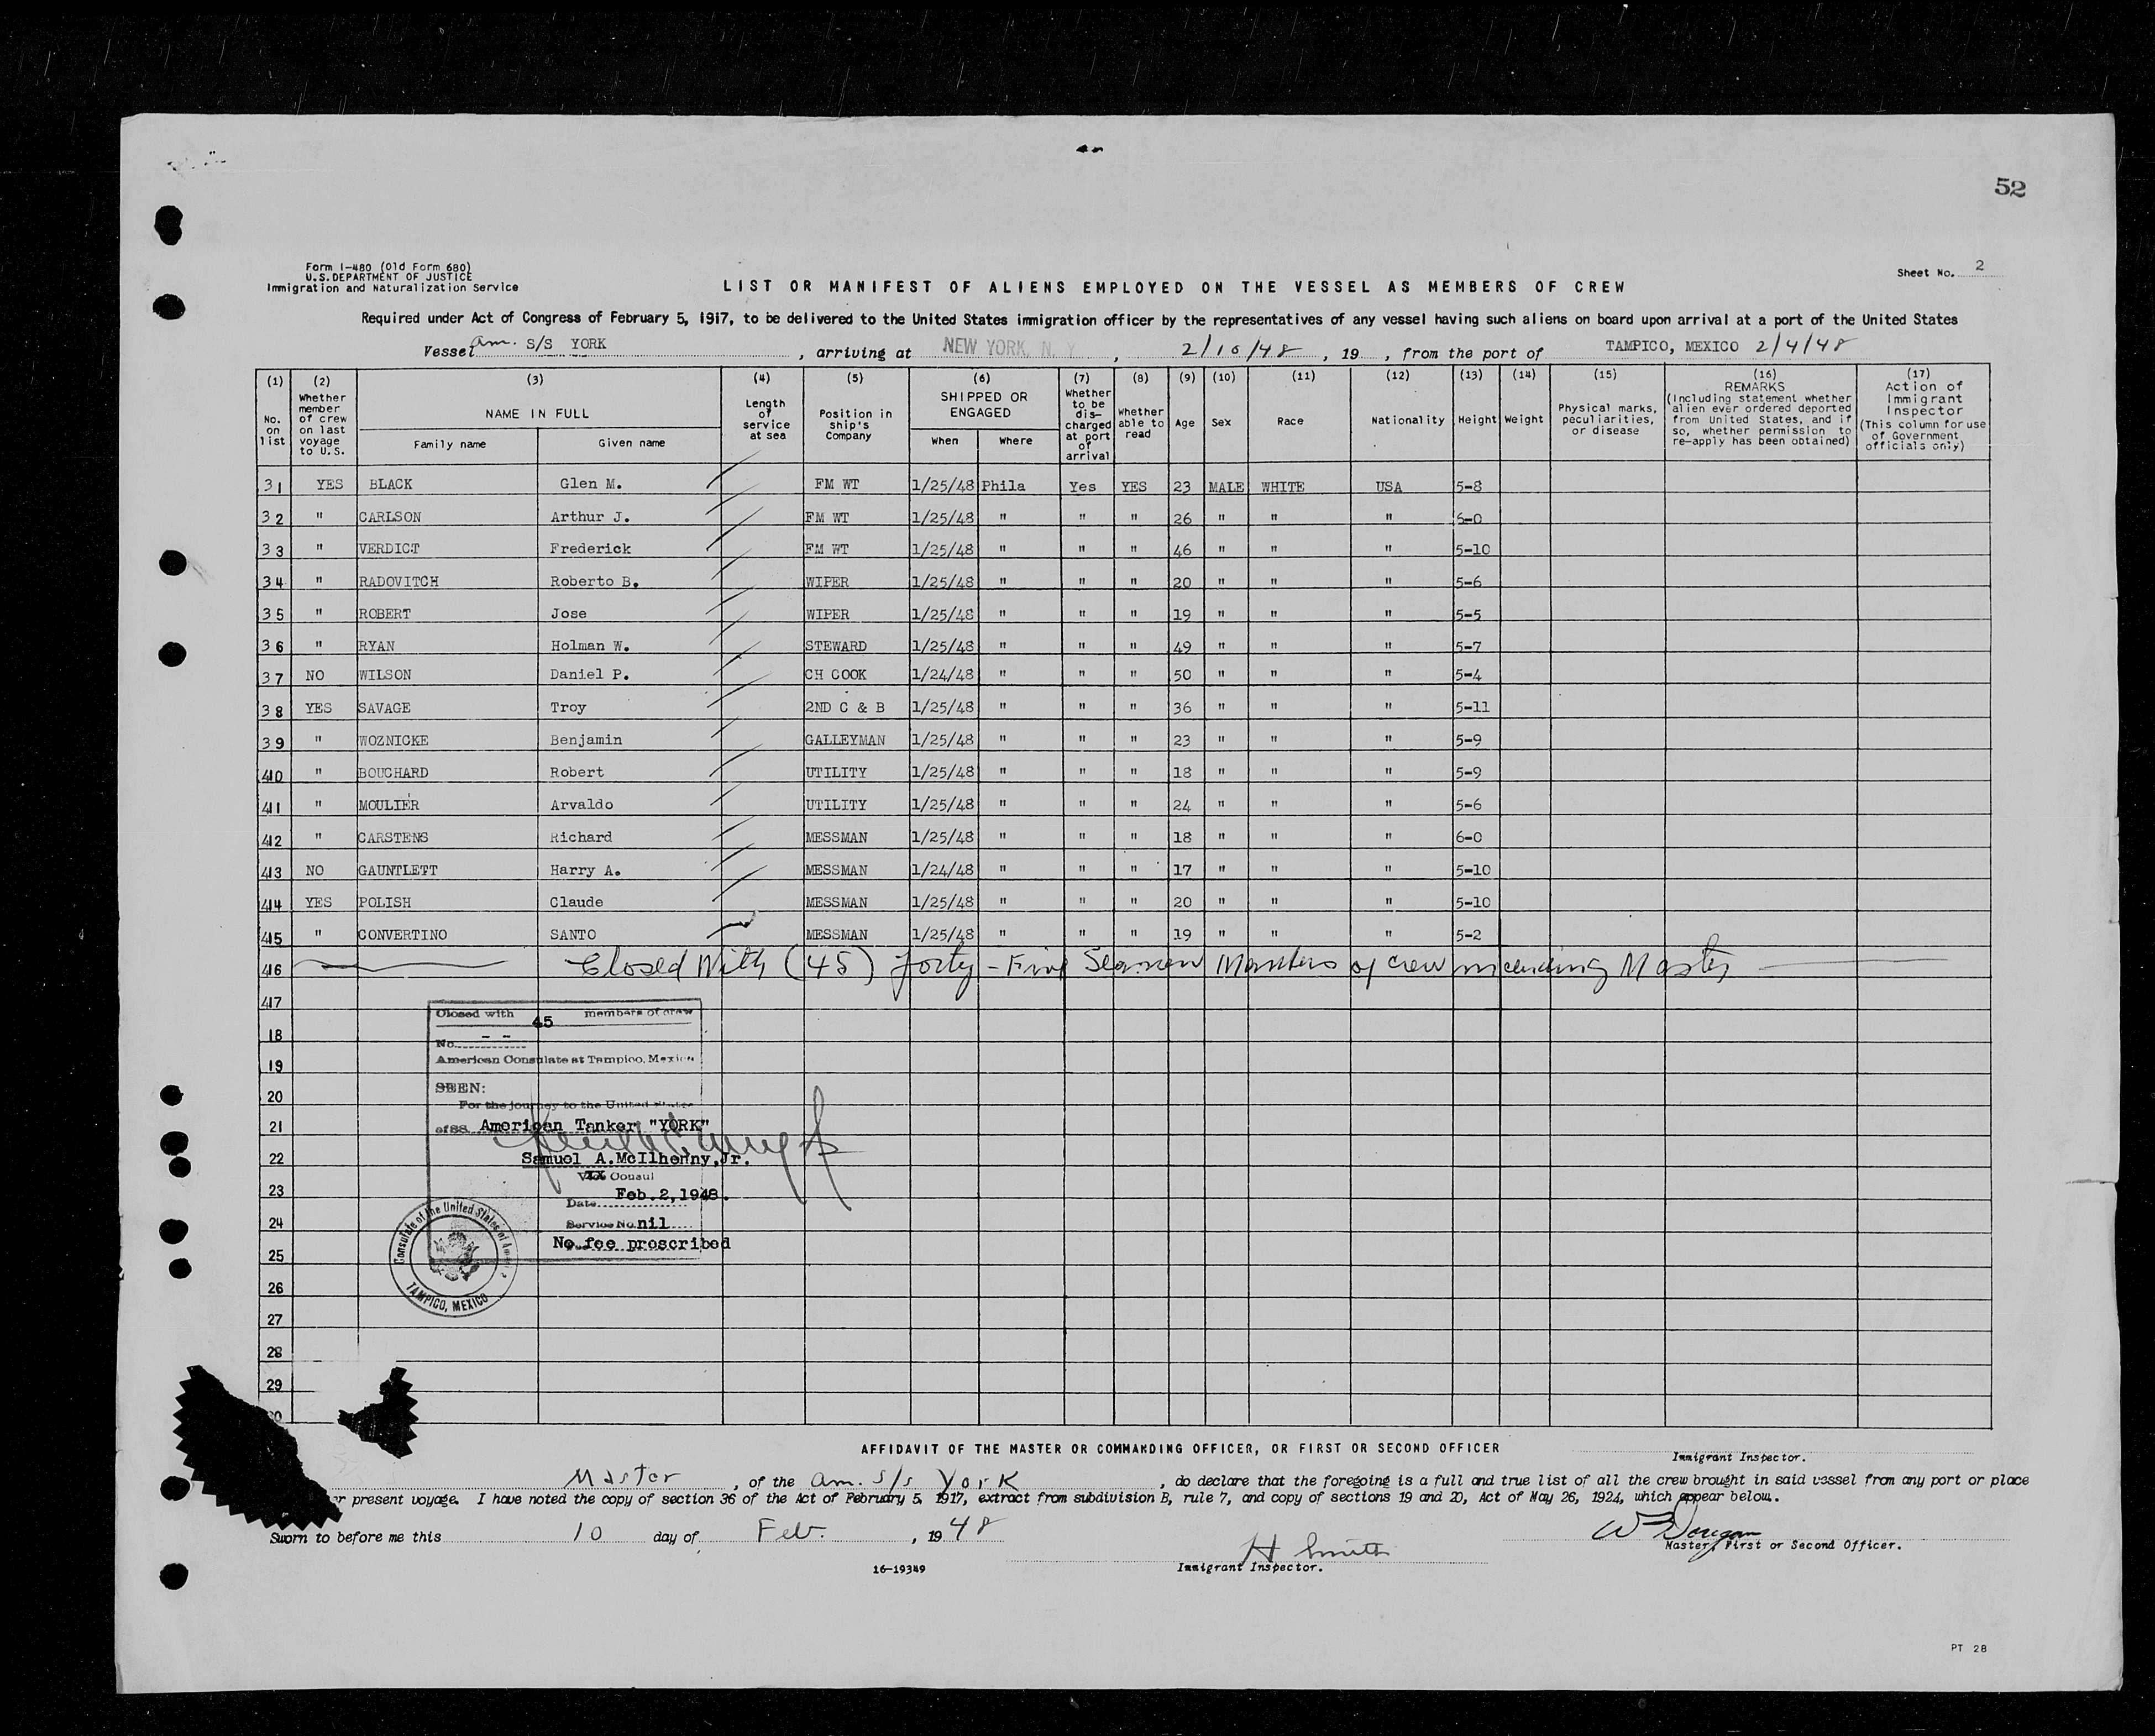 52
Form I-480 (Old Form 680)
U.S.DEPARTMENT OF JUSTICE
Immigration and Naturalization Service
Sheet No. 2
LIST OR MANIFEST OF ALIENS EMPLOYED ON THE VESSEL AS MEMBERS OF CREW
Required under Act of Congress of February 5, 1917, to be delivered to the United States immigration officer by the representatives of any vessel having such aliens on board upon arrival at a port of the United States
Vessel Am. S/S YORK, arriving at NEW YORK, N. Y, 2/10/48, 19, from the port of TAMPICO, MEXICO 2/4/48
(1) No. on list
(2) Whether member of crew on last voyage to U.S.
(3) NAME IN FULL Family name Given name
(4) Length of service at sea
(5) Position in ship's Company
(6) SHIPPED OR ENGAGED When Where
(7) Whether to be discharged at port of arrival
(8) Whether able to read
(9) Age
(10) Sex
(11) Race
(12) Nationality
(13) Height
(14) Weight
(15) Physical marks, peculiarities, or disease
(16) REMARKS (Including statement whether alien ever ordered deported from United States, and if so, whether permission to re-apply has been obtained)
(17) Action of Immigrant Inspector (This column for use of Government officials only)
31 YES BLACK Glen M. FM WT 1/25/48 Phila Yes YES 23 MALE WHITE USA 5-8
32 " CARLSON Arthur J. FM WT 1/25/48 " " " 26 " " " 6-0
33 " VERDICT Frederick FM WT 1/25/48 " " " 46 " " " 5-10
34 " RADOVITCH Roberto B. WIPER 1/25/48 " " " 20 " " " 5-6
35 " ROBERT Jose WIPER 1/25/48 " " " 19 " " " 5-5
36 " RYAN Holman W. STEWARD 1/25/48 " " " 49 " " " 5-7
37 NO WILSON Daniel P. CH COOK 1/24/48 " " " 50 " " " 5-4
38 YES SAVAGE Troy 2ND C & B 1/25/48 " " " 36 " " " 5-11
39 " WOZNICKE Benjamin GALLEYMAN 1/25/48 " " " 23 " " " 5-9
40 " BOUCHARD Robert UTILITY 1/25/48 " " " 18 " " " 5-9
41 " MOULIER Arvaldo UTILITY 1/25/48 " " " 24 " " " 5-6
42 " CARSTENS Richard MESSMAN 1/25/48 " " " 18 " " " 6-0
43 NO GAUNTLETT Harry A. MESSMAN 1/24/48 " " " 17 " " " 5-10
44 YES POLISH Claude MESSMAN 1/25/48 " " " 20 " " " 5-10
45 " CONVERTINO SANTO MESSMAN 1/25/48 " " " 19 " " " 5-2
46 Closed With (45) forty-Five Seamen Members of crew including Master
47
Closed with 45 members of crew
18
No. - -
American Consulate at Tampico, Mexico
19
SEEN:
20
For the journey to the United States
21
of SS. American Tanker "YORK"
22
Samuel A.McIlhenny,Jr.
Consul
23
Date Feb.2,1948.
24
Service No. nil
No fee prescribed
25
Consulate of the United States of America
TAMPICO, MEXICO
26
27
28
29
AFFIDAVIT OF THE MASTER OR COMMANDING OFFICER, OR FIRST OR SECOND OFFICER
Immigrant Inspector.
Master, of the Am. S/S York, do declare that the foregoing is a full and true list of all the crew brought in said vessel from any port or place
present voyage. I have noted the copy of section 36 of the Act of February 5, 1917, extract from subdivision B, rule 7, and copy of sections 19 and 20, Act of May 26, 1924, which appear below.
Sworn to before me this 10 day of Feb., 1948
H Smith
Immigrant Inspector.
Master, First or Second Officer.
16-19349
PT 28